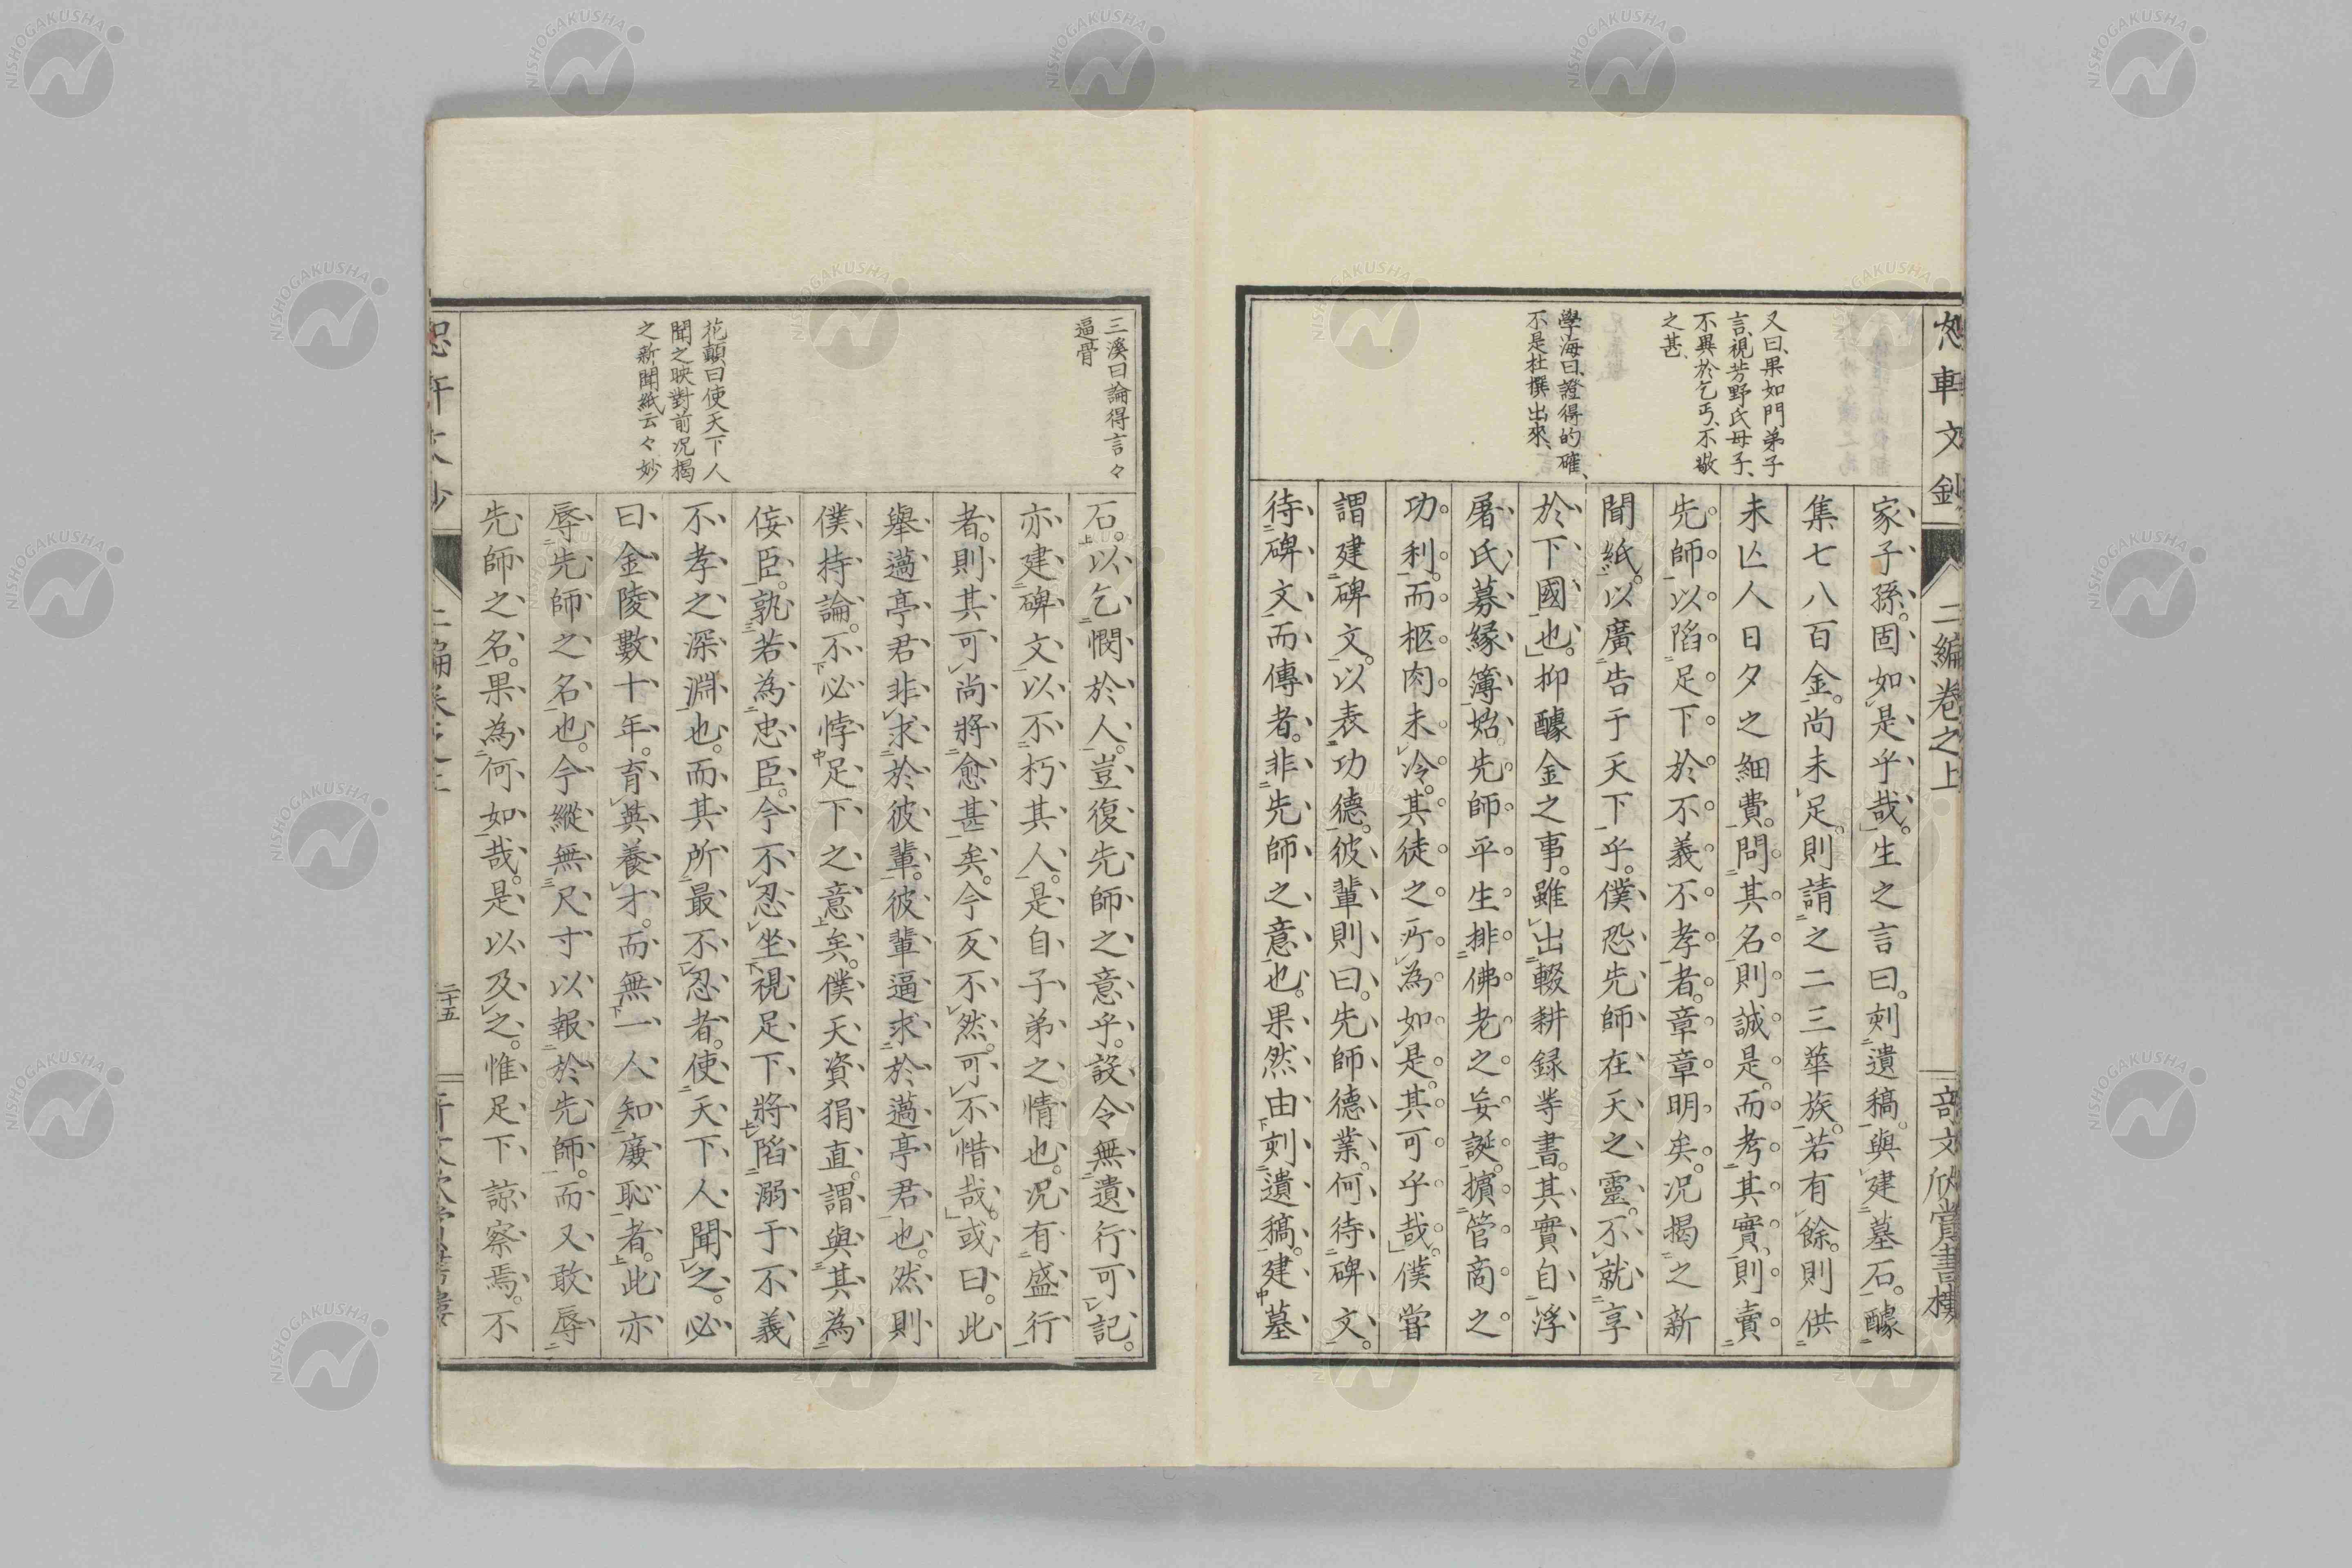 又曰、果如門弟子
言、視芳野氏母子、
不異於乞丐、不敬
之甚、
學海曰、證得的確、
不是杜撰出來、
家子孫。固如是乎哉。」生之言曰。刻遺稿。與建墓石。醵
集七八百金。尚未足。則請之二三華族。若有餘。則供
未亡人日夕之細費。問其名。則誠是。而考其實。則賣
先師。以陷足下於不義不孝者。章章明矣。況揭之新
聞紙。以廣告于天下乎。僕恐先師在天之靈。不就享
於下國也。」抑醵金之事。雖出輟耕録等書。其實自浮
屠氏募縁簿始。先師平生排佛老之妄誕。擯管商之
功利。而柩肉未冷。其徒之所為如是。其可乎哉。」僕嘗
謂建碑文。以表功德。彼輩則曰。先師德業。何待碑文。
待碑文而傳者。非先師之意也。果然由刻遺稿。建墓
二編卷之上
三溪曰論得言々
逼骨
花顛曰使天下人
聞之映對前況揭
之新聞紙云々妙
石。以乞憫於人。豈復先師之意乎。設令無遺行可記。
亦建碑文以不朽其人。是自子弟之情也。況有盛行
者。則其可尚將愈甚矣。今反不然。可不惜哉。」或曰。此
舉邁亭君非求於彼輩。彼輩逼求於邁亭君也。然則
僕持論。不必悖足下之意矣。僕天資狷直。謂與其為
佞臣。孰若為忠臣。今不忍坐視足下將陷溺于不義
不孝之深淵也。而其所最不忍者。使天下人聞之。必
曰金陵數十年。育英養才。而無一人知廉恥者。此亦
辱先師之名也。今縱無尺寸以報於先師。而又敢辱
先師之名。果為何如哉。是以及之。惟足下諒察焉。不
二十五